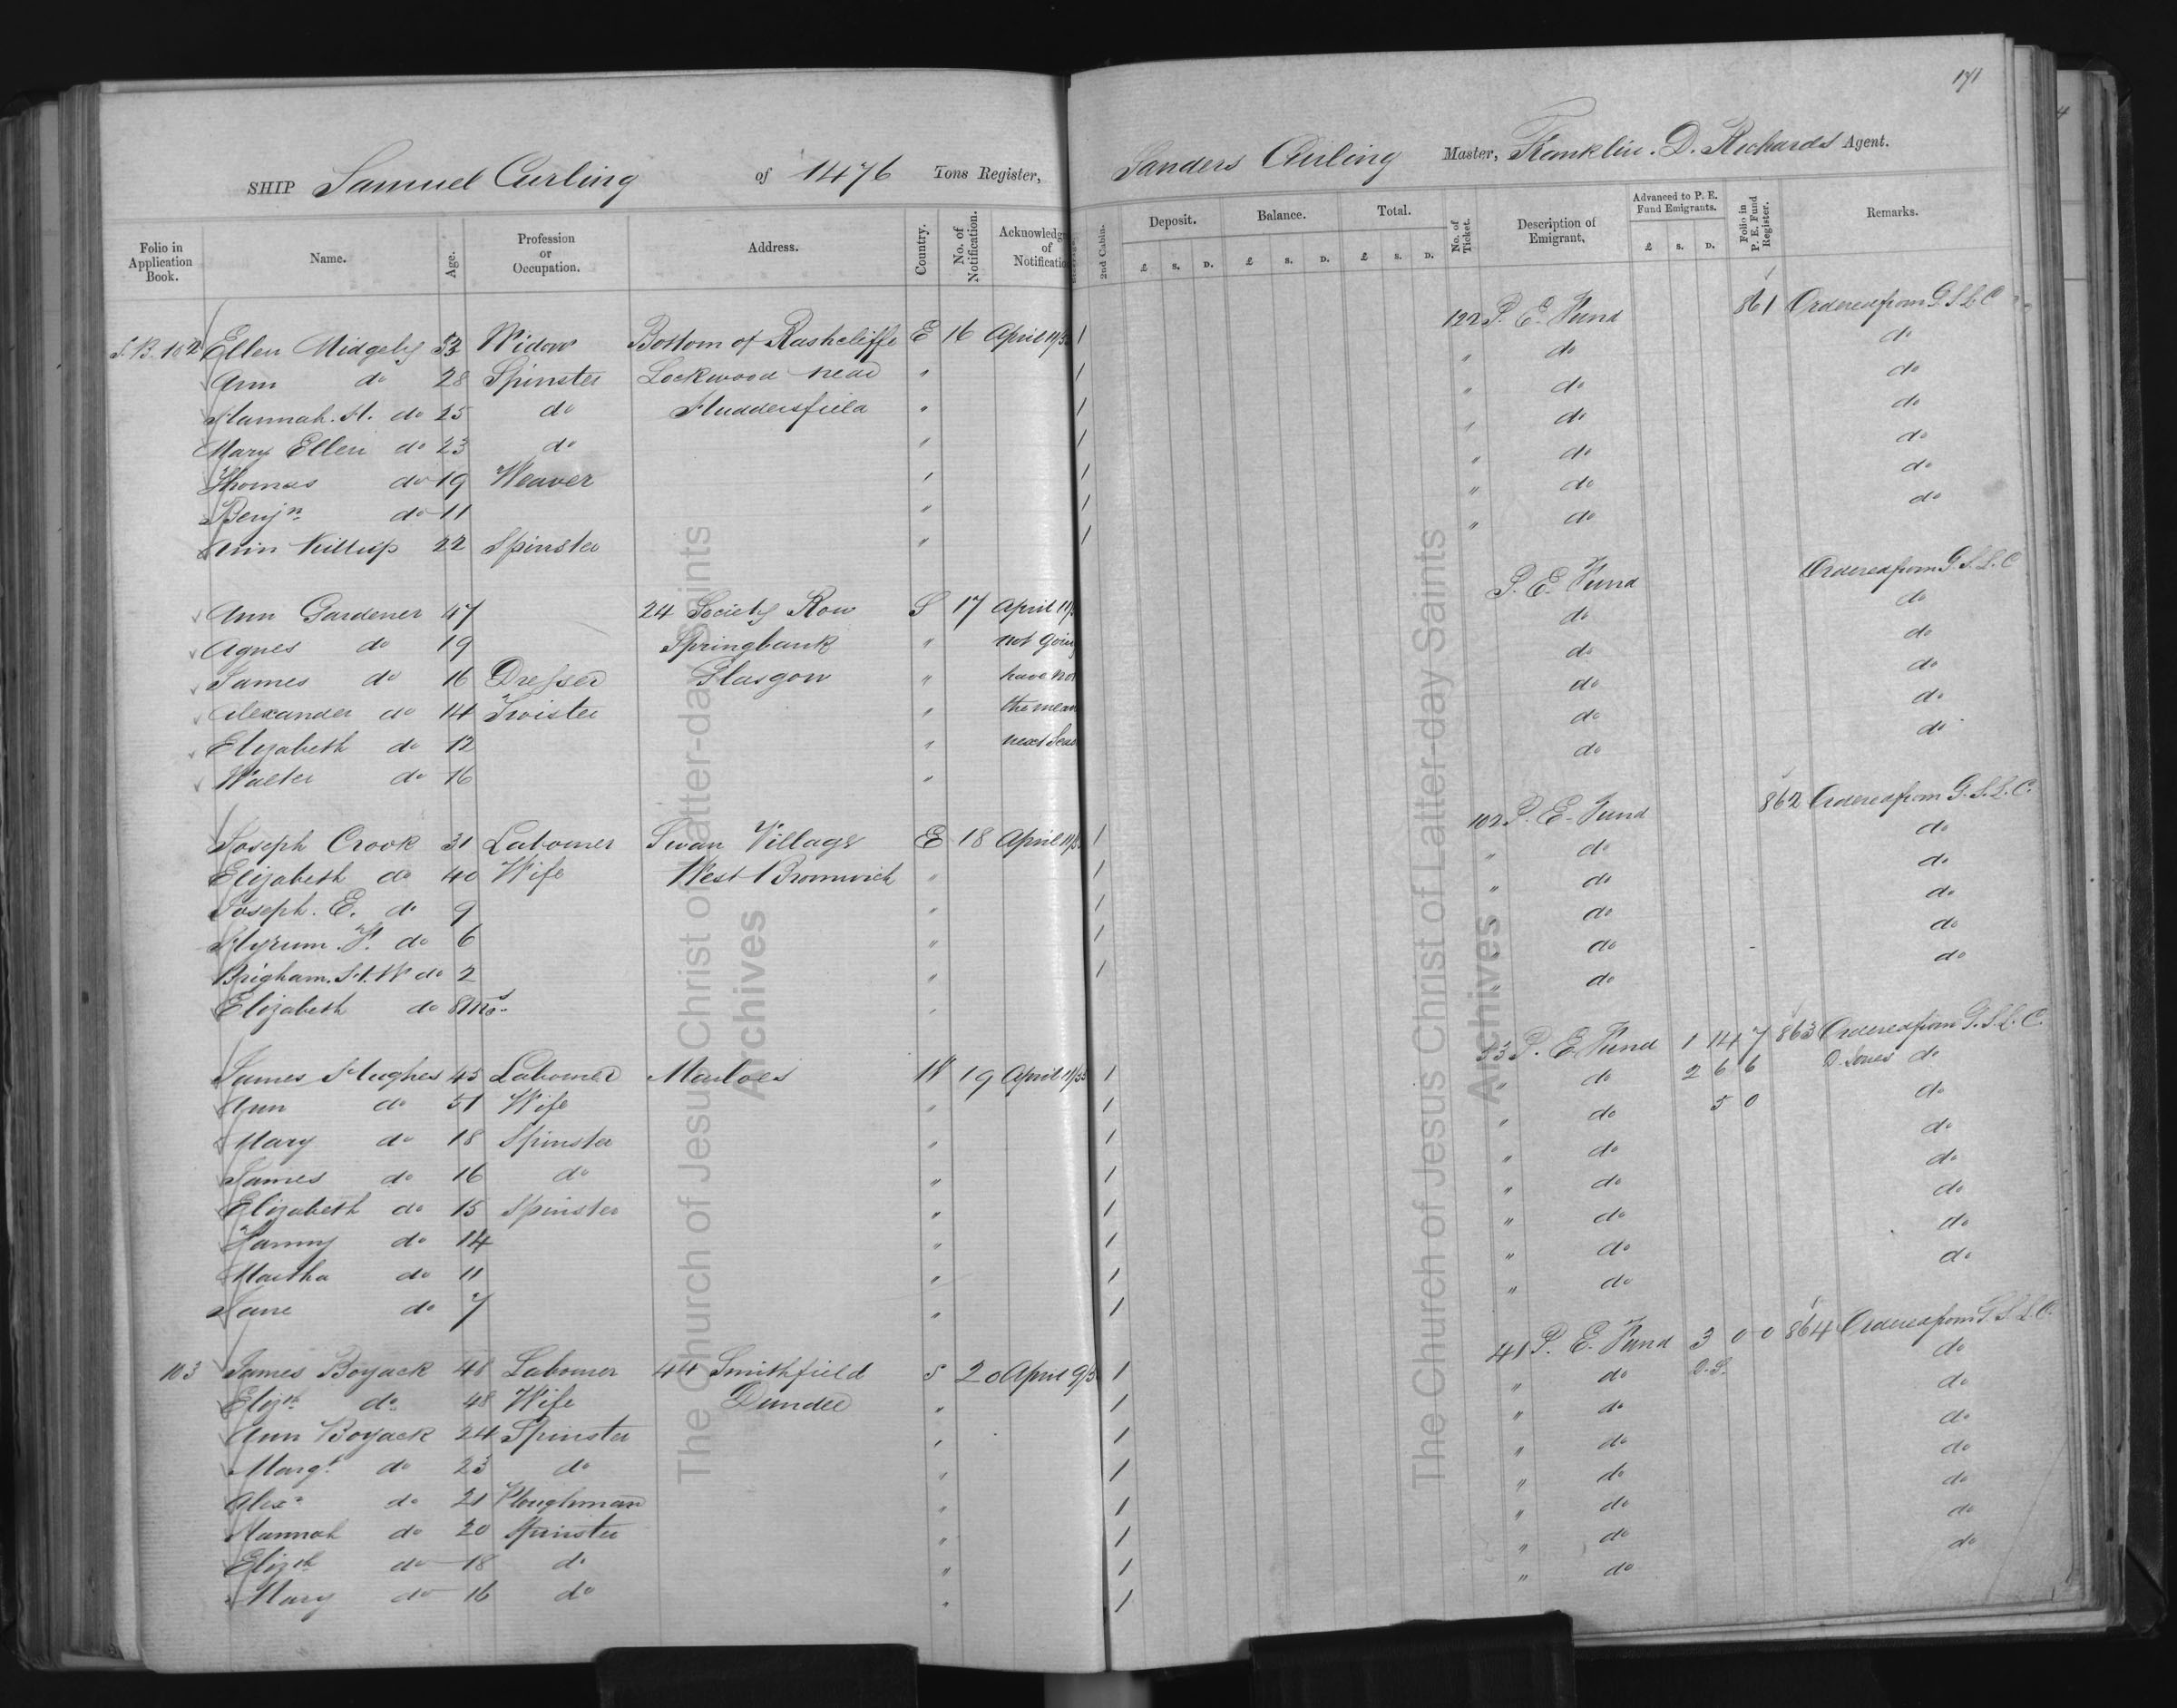 171
SHIP Samuel Curling of 1476 Tons Register, Sanders Curling Master, Franklin. D. Richards Agent.
Folio in Application Book. Name. Age. Profession or Occupation. Address. Country. No. of Notification. Acknowledg of Notificatio 2nd Cabin. Deposit. £ s. D. Balance. £ s. D. Total. £ s. D. No. of Ticket. Description of Emigrant, Advanced to P. E. Fund Emigrants. £ s. D. Folio in P. E. Fund Register. Remarks.
102 Ellen Midgely Widow Bottom of Rashcliffe E 16 April 11/5 1 122 P. E. Fund 861 Ordered from G. S. L. C
Ann do 28 Spinster Lockwood near " 1 " do do
Hannah. H. do 25 do Huddersfield " 1 " do do
Mary Ellen do 23 do " 1 " do do
Thomas do 19 Weaver " 1 " do do
Benjn do 11 " 1 " do do
Ann 22 Spinster " 1 " do do
Ann Gardener 47 24 Society Row S 17 April 11/5 P. E. Fund Ordered from G. S. L. C
Agnes do 19 Springbank " not going do do
James do 16 Dresser Glasgow " have not do do
Alexander do 14 Twister " the mean do do
Elizabeth do 12 " next Seas do do
Walter do 16 " do do
Joseph Crook 31 Labourer Swan Village E 18 April 11/5 1 102 P. E. Fund 862 Ordered from G. S. L. C.
Elizabeth do 40 Wife West Bromwich " 1 " do do
Joseph. E. do 9 " 1 " do do
Hyrum. F. do 6 " 1 do do
Brigham. H. W do 2 " 1 do do
Elizabeth do 8 mos. " " do do
James Hughes 45 Labourer Marloes W 19 April 11/55 1 53 P. E. Fund 1 14 7 863 Ordered from G. S. L. C.
Ann do 51 Wife " 1 " do 2 6 6 D. Jones do
Mary do 18 Spinster " 1 " do 5 0 do
James do 16 do " 1 " do do
Elizabeth do 15 Spinster " 1 " do do
Fanny do 14 " 1 " do do
Martha do 11 " 1 " do do
Jane do 7 " 1 " do do
103 James Boyack 48 Labourer 44 Smithfield S 20 April 9/5 1 41 P. E. Fund 3 0 0 864 Ordered from G. S. L. C.
Elizth do 48 Wife Dundee " 1 " do D. S. do
Ann Boyack 24 Spinster " 1 " do do
Margt do 23 do " 1 " do do
Alexr do 21 Ploughman " 1 " do do
Hannah do 20 Spinster " 1 " do do
Elizth do 18 do " 1 " do do
Mary do 16 do " 1 " do do
The Church of Jesus Christ of Latter-day Saints
Archives
The Church of Jesus Christ of Latter-day Saints
Archives